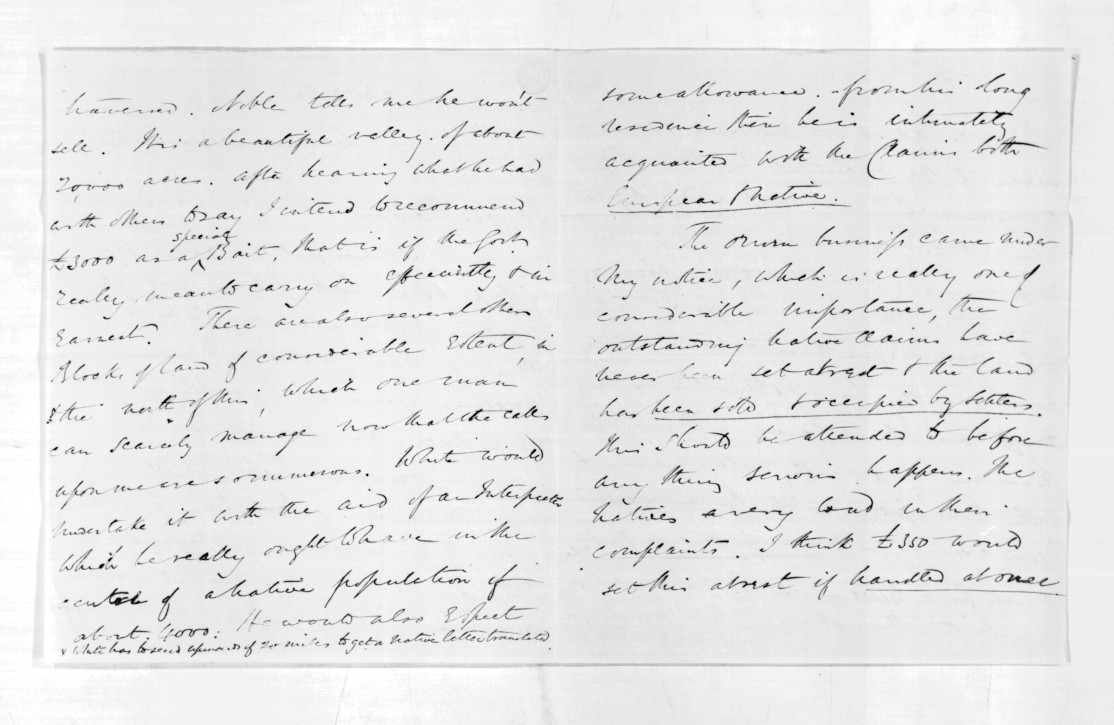 traversed. Noble tells me he won't
sell. It is a beautiful valley. of about
20,000 acres. after hearing what he had
with others to say I intend to recommend
specialty
£3000 as a Bait, that is if the Govt.
really mean to carry on efficiently & in
Earnest. There are also several others
Blocks of land of considerable Extent, in
the north of this, which one man
can scarcely manage now that the calls
upon me are so numerous. White would
undertake it with the aid of an Interpreter
which he really ought to have in the
center of a native population of
about 4000: He would also Expect
x White has to send upwards of 20 miles to get a native letter translated.
some allowance. - from his long
residence there he is intimately
acquainted with the Claims both
European & Native.
The Oruru business came under
My notice, which is really one of
considerable importance, the
outstanding Native Claims have
never been set at rest & the land
has been sold & occupied by settlers.
This should be attended to before
any thing serious happens. The
Natives are very loud in their
complaints. I think £350 would
set this at rest if handled at once